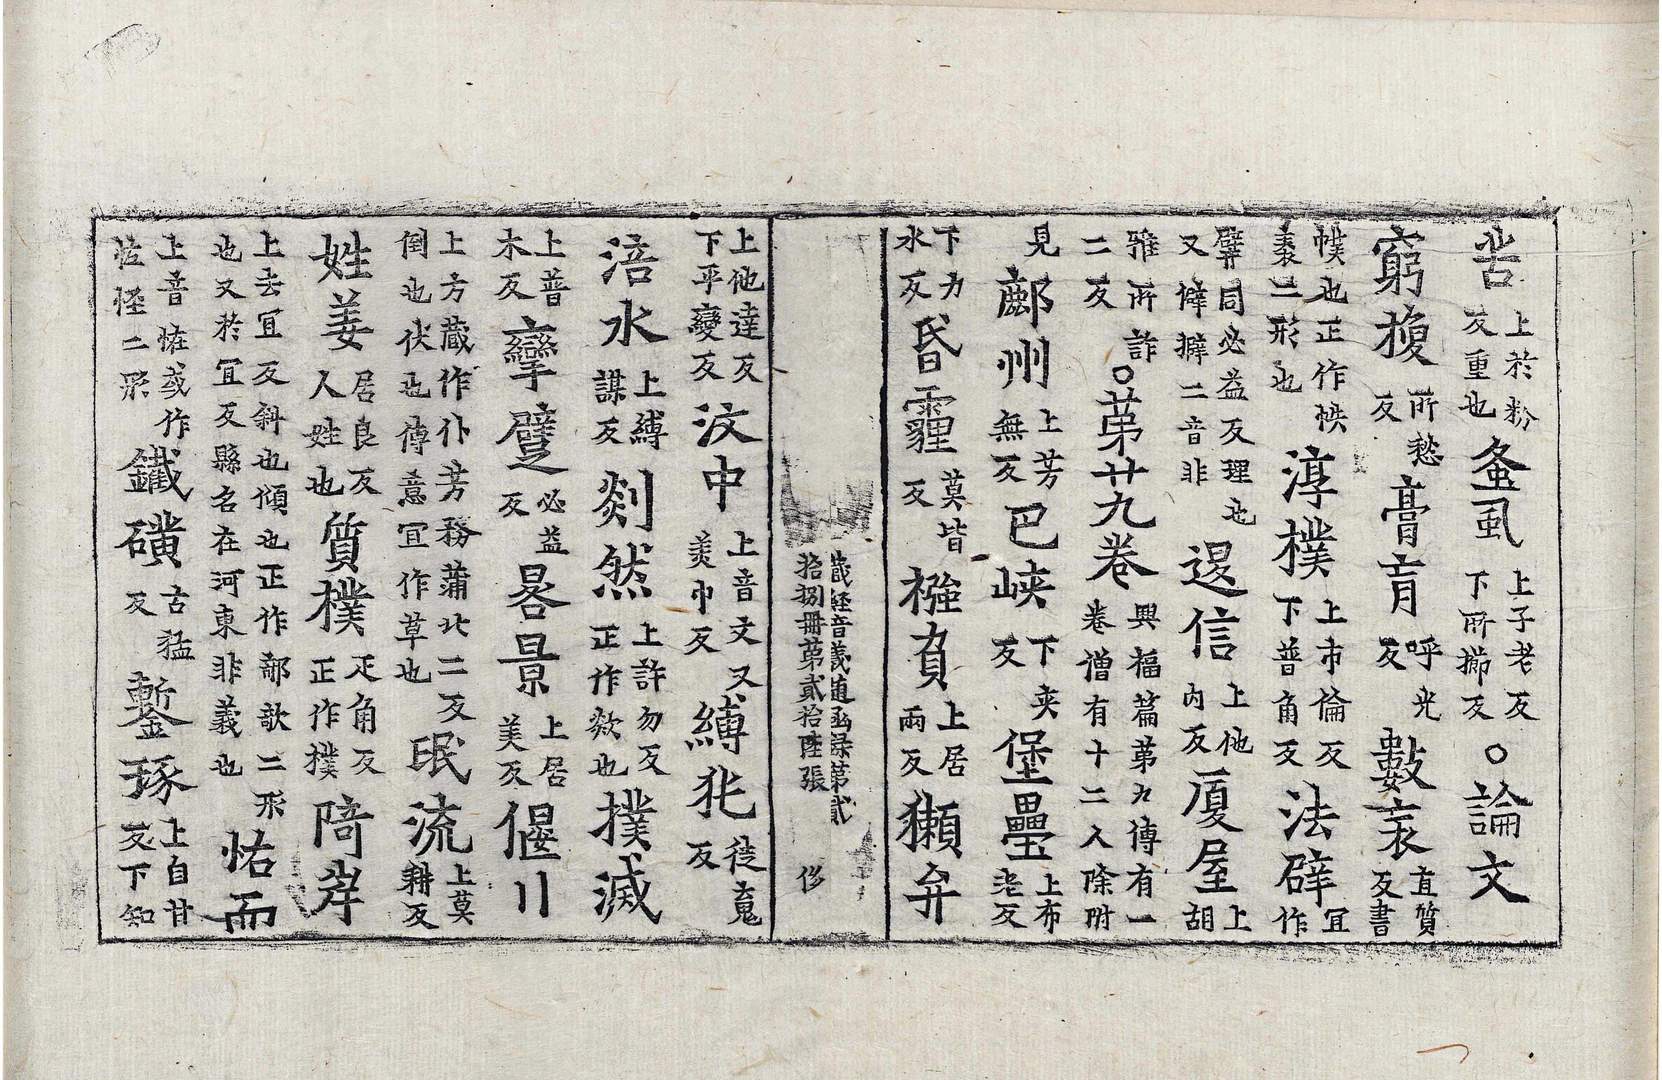 上於粉反重也蚤虱上子老反下所擳反○論文
窮搜所愁反膏肓呼光反數袠直質反書
幞也正作帙袠二形也淳樸上市倫反下普角反法辟宜作
擘同必益反理也又僻擗二音非逷信上他內反廈屋上胡
雅所詐二反○第廿九卷興福篇第九傳有一卷僧有十二人除附
見鄜州上芳無反巴峽下夾反堡壘上布老反
下力水反昏霾莫皆反襁負上居兩反獺弁
藏經音義隨函錄第貳拾捌冊第貳拾陸張 侈
上他達反下平變反汶中上音文又美巾反縛㹠徒魂反
涪水上縛謀反剡然上許勿反正作欻也撲滅
上普木反攣躄必益反晷景上居美反偃川
上方藏作仆芳務蒲北二反倒也伏也傳意宜作草也氓流上莫耕反
姓姜居良反人姓也質樸疋角反正作樸陭岸
上去宜反斜也傾也正作攲二形也又於宜反縣名在河東非義也怙而
上音恠或作恠怪二形鐵礦古猛反鏨琢上自甘反下知